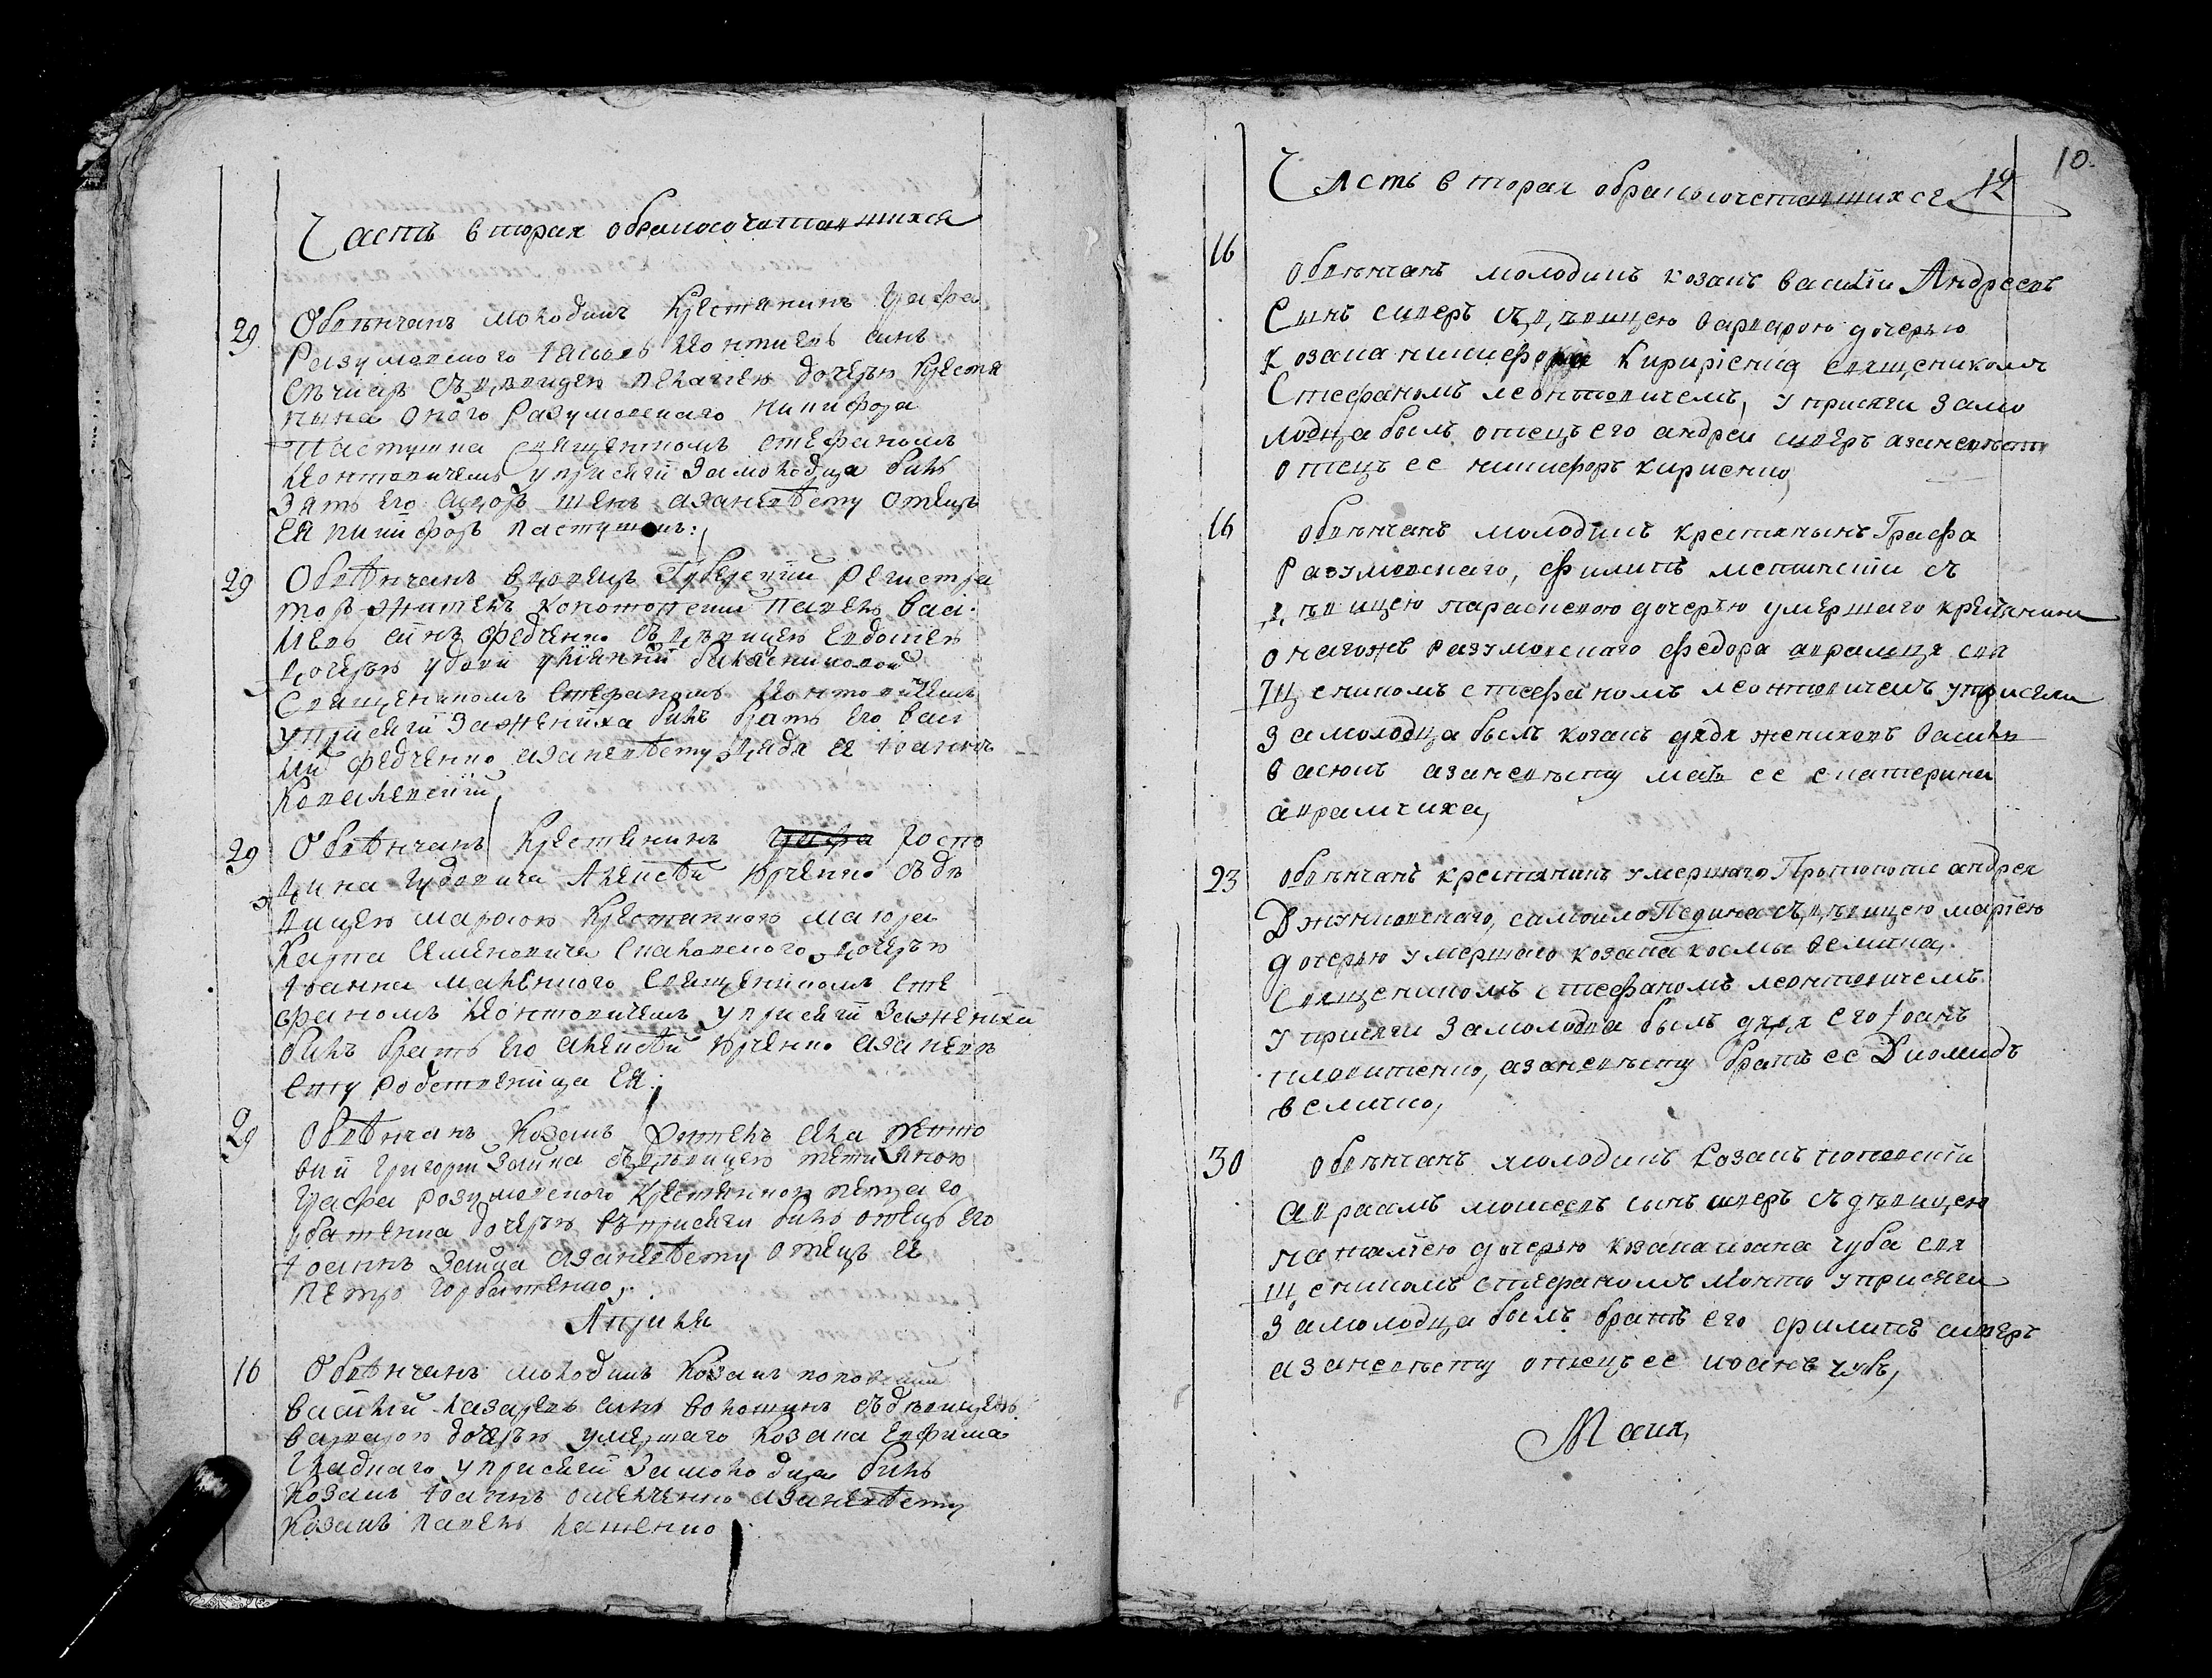 Часть вторая обракосочетавшихся
29 Обвѣнчанъ молодикъ Крестянинъ Графа
Разумовского Яковъ Леонтиевъ синъ
Сѣчкарь съ дѣвицею Пелагиею дочерью Крестя
нина оного Разумовского Никифора
Пастушка Священикомъ Стефаномъ
Леонтовичемъ у присяги замолодца билъ
Зять его азаневѣсту отецъ
Ея Никифоръ Пастушокъ:
29 Обвѣнчанъ вдовецъ Губернский Регистра
торъ житель конотопский Павелъ Васи
лиевъ синъ Федченко съ дѣвицею Евдокиею
дочерью убогия
Священикомъ Стефаномъ Леонтовичемъ
у присяги за жениха билъ братъ его Васи
лий Федченко азаневѣсту дядя ея Иоаннъ
Ковалевский
29 Обвѣнчанъ Крестянинъ Госпо
дина Гудовича Алексѣй Юрченко съ дѣ
вицею Марфою Крестянкою маиора
Карпа Семеновича дочерью
Иоанна Священикомъ Сте
фаномъ Леонтовичемъ у присяги зажениха
билъ братъ его Алексѣй Юрченко азаневѣ
сту родственица ея:
29 Обвѣнчанъ Козакъ житель села
Григорий Заика съ дѣвицею Татияною
Графа Розумовского Крестянкою Петра Го
рбатенка дочерью въ присяги билъ отецъ его
Иоаннъ Заика азаневѣсту отецъ ея
Петро Горбатенко,
Априля
16 Обвѣнчанъ молодикъ Козакъ поповский
Василий Назаревъ синъ Волошинъ съ дѣвицею
Варварою дочерью умершаго Козака Евфима
Гладкаго у присяги замолодца билъ
Козакъ Иоаннъ азаневѣсту
Козакъ Павелъ
10.
Часть вторая обракосочетавшихся 12
16 обвѣнчанъ молодикъ козакъ василiи Андреевъ
Сынъ сиверъ съ дѣвицею варварою дочерью
козака никифора Кирiенка Священикомъ
Стефаномъ леонтовичемъ, у присяги замо
лодца былъ отецъ его андреи сиверъ азаневѣсту
отецъ ее никифоръ кириенко,
16 обвѣнчанъ молодикъ крестянынъ Графа
Разумовскаго, филипъ съ
дѣвицею параскевою дочерью умершаго крестянина
онагожъ разумовскаго федора аврамця свя
щеникомъ стефаномъ леонтовичемъ уприсяги
замолодца былъ козакъ дядя жениховъ василъ
васюкъ азаневѣсту мать ее екатерина
аврамчиха,
23 обвѣнчанъ крестянинъ умершаго Протопопа андрея
самоило съ дѣвицею марiею
дочерью умершаго козака космы велика,
Священикомъ стефаномъ леонтовичемъ
у присяги замолодца былъ дядя его Iоанъ
азаневѣсту братъ ее Диомидъ
величко,
30 обвѣнчанъ молодикъ козакъ поповскiи
авраамъ моисеевъ сынъ сиверъ съ дѣвицею
наталiею дочерью козака иоана чуба свя
щеникомъ стефаномъ леонто уприсяги
замолодца былъ братъ его филипъ сиверъ
азаневѣсту отецъ ее иоанъ чубъ,
Маия,